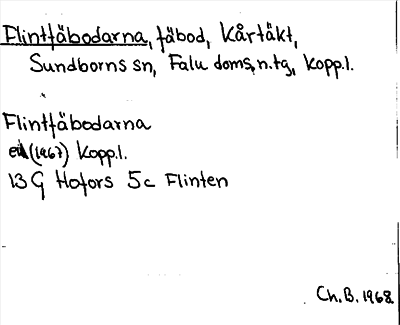 Flintfäbodarna, fäbod, Kårtäkt,
Sundborns sn, Falu doms. n. tg, Kopp.l.
Flintfäbodarna
(1967) Kopp.l.
13 G Hofors 5c Flinten
Ch. B. 1968